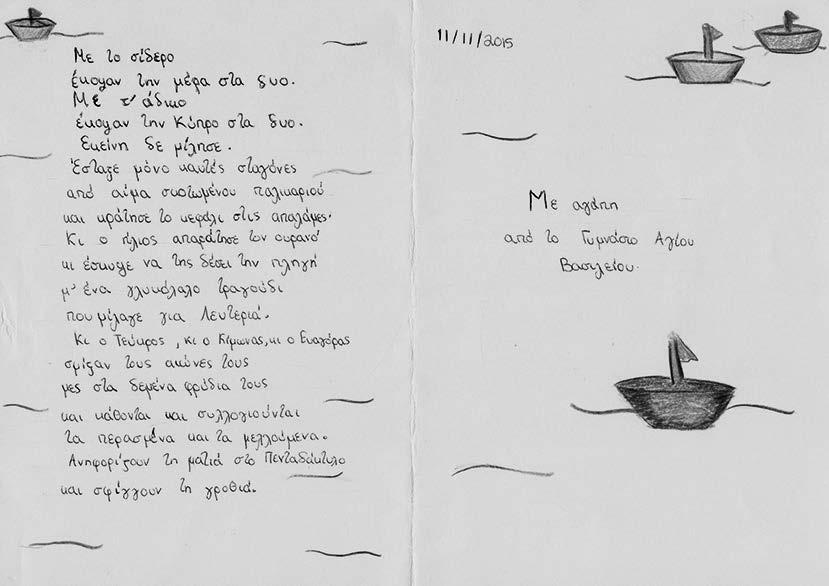 Με το σίδερο
έκοψαν την μέρα στα δυο.
Με τ' άδικο
έκοψαν την Κύπρο στα δυο.
Εκείνη δε μίλησε.
Έσταξε μόνο καυτές σταγόνες
από αίμα σκοτωμένου παλικαριού
και κράτησε το κεφάλι στις απαλάμες.
Κι ο ήλιος απαράτησε τον ουρανό
κι έσκυψε να της δέσει την πληγή
μ' ένα γλυκόλαλο τραγούδι
που μίλαγε για Λευτεριά.
Κι ο Τεύκρος, κι ο Κίμωνας, κι ο Ευαγόρας
σμίξαν τους αιώνες τους
μες στα δεμένα φρύδια τους
και κάθονται και συλλογιούνται
τα περασμένα και τα μελλούμενα.
Ανηφορίζουν τη ματιά στο Πενταδάκτυλο
και σφίγγουν τη γροθιά.
11/11/2015
Με αγάπη
από το Γυμνάσιο Αγίου
Βασιλείου.